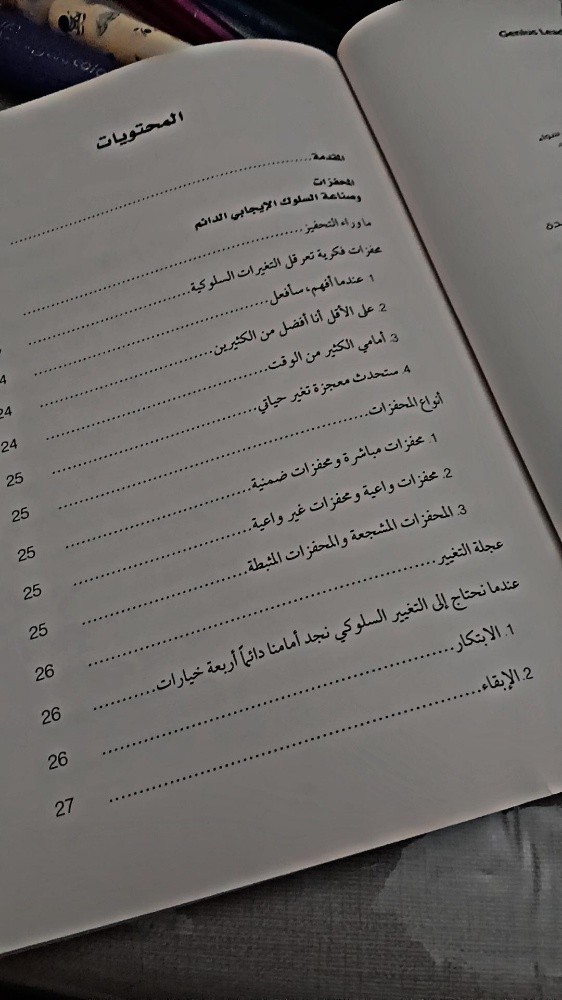 المحتويات
المقدمة
المحفزات
وصناعة السلوك الإيجابي الدائم
ما وراء التحفيز
محفزات فكرية تعرقل التغيرات السلوكية
1 عندما أفهم، سأفعل
2. على الأقل أنا أفضل من الكثيرين 24
3. أمامي الكثير من الوقت 24
4. ستحدث معجزة تغير حياتي 25
أنواع المحفزات 25
1. محفزات مباشرة ومحفزات ضمنية 25
2. محفزات واعية ومحفزات غير واعية 25
3. المحفزات المشجعة والمحفزات المثبطة 25
عجلة التغيير 26
عندما نحتاج إلى التغيير السلوكي نجد أمامنا دائماً أربعة خيارات 26
1. الابتكار 26
2. الإبقاء 27
Genius